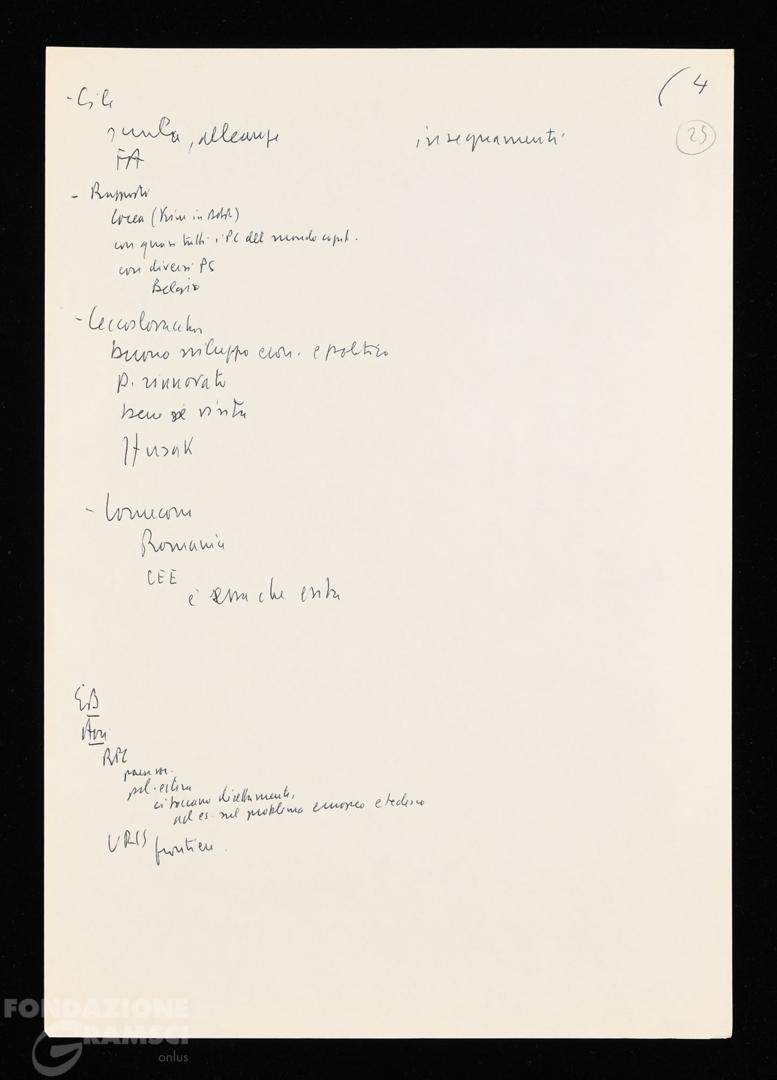 ( 4
25
- Cile
giunta, alleanze insegnamenti
FA
- Rapporti
Corea (Kim in
con quasi tutti i PC del mondo capit.
con diversi PS
Belgio
- Cecoslovacchia
buono sviluppo econ. e politico
p. rinnovato
bene visita
Husak
- Comecon
Romania
CEE
è essa che esita
EB
RPC
pol. estera
ci toccano direttamente,
ad es. sul problema europeo e tedesco
URSS frontiere.
FONDAZIONE
GRAMSCI
onlus